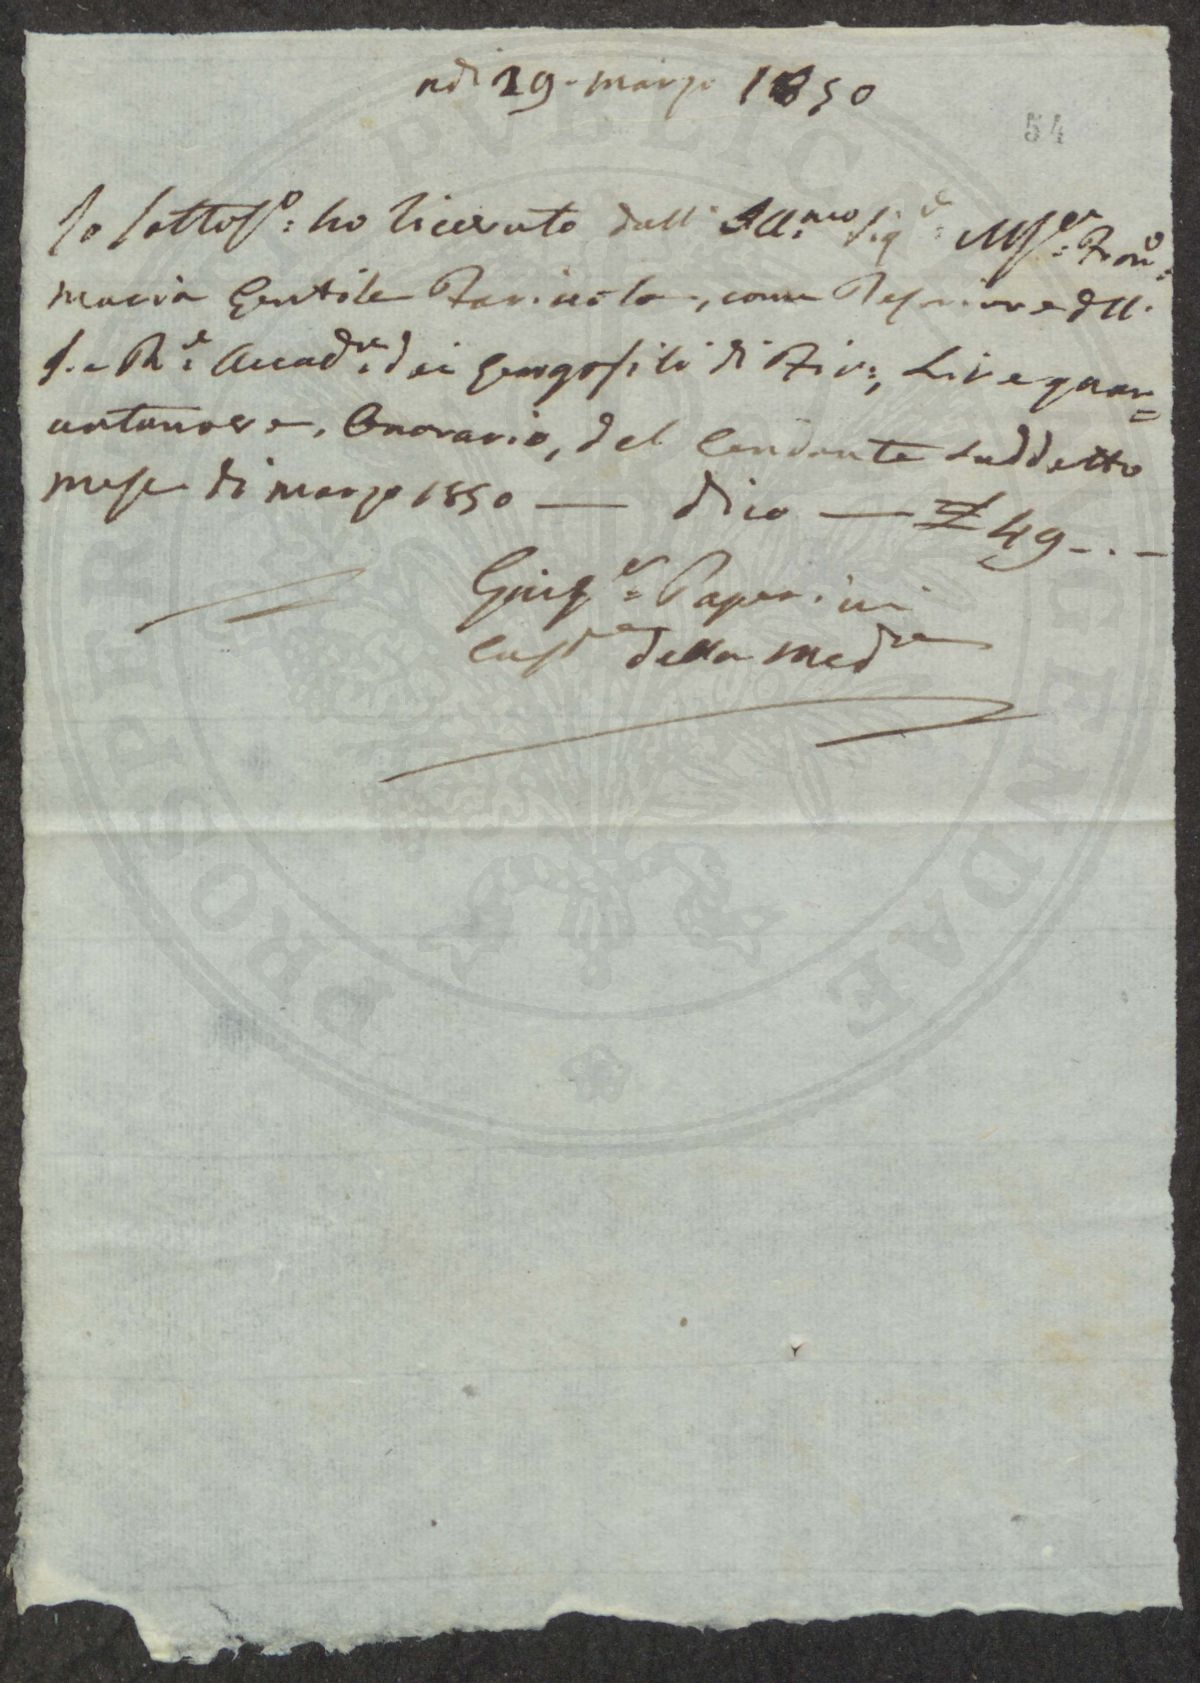 adì 29. marzo 1850
54
Io sottos.o: ho ricevuto dall' Ill.mo Sig.e: M.se: Fran.o=
maria Gentile Farinola, come Tesoriere dell.
I. e R.e: Accad.a: dei Georgofili di Fir:, Lire quar=
antanove, Onorario, del Cendente suddetto
mese di marzo 1850 — dico — £ 49 - . -
Gius.e: Paperini
Cust.e della Med.a
PROSPERITATI PUBLICAE AUGENDAE